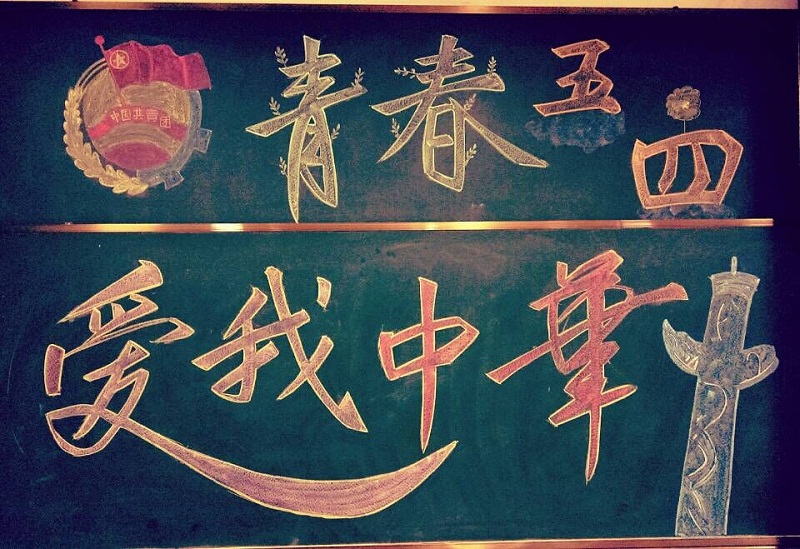 中国共青团
青春五四
爱我中華